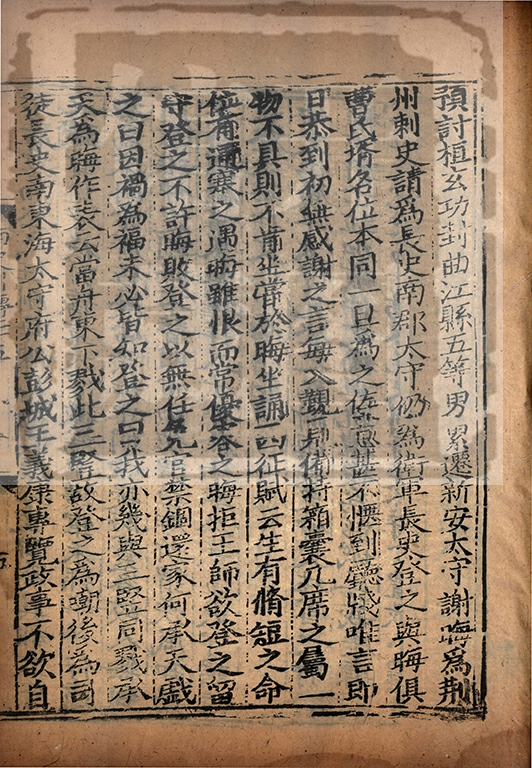 預討桓玄功封曲江縣五等男累遷新安太守謝晦爲荆
州刺史請爲長史南郡太守仍爲衛軍長史登之與晦俱
曹氏壻名位本同一旦爲之佐意甚不愜到廳牋唯言即
日恭到初無感謝之言每入覲見備持箱囊几席之屬一
物不具則不肯坐嘗於晦坐誦西征賦云生有脩短之命
位有通塞之遇晦雖恨而常優容之晦拒王師欲登之留
守登之不許晦敗登之以無任免官禁錮還家何承天戲
之曰因禍爲福未必皆知登之曰我亦幾與三豎同戮承
天爲晦作表云當舟東下戮此三豎故登之爲嘲後爲司
徒長史南東海太守府公彭城王義康專覽政事不欲自